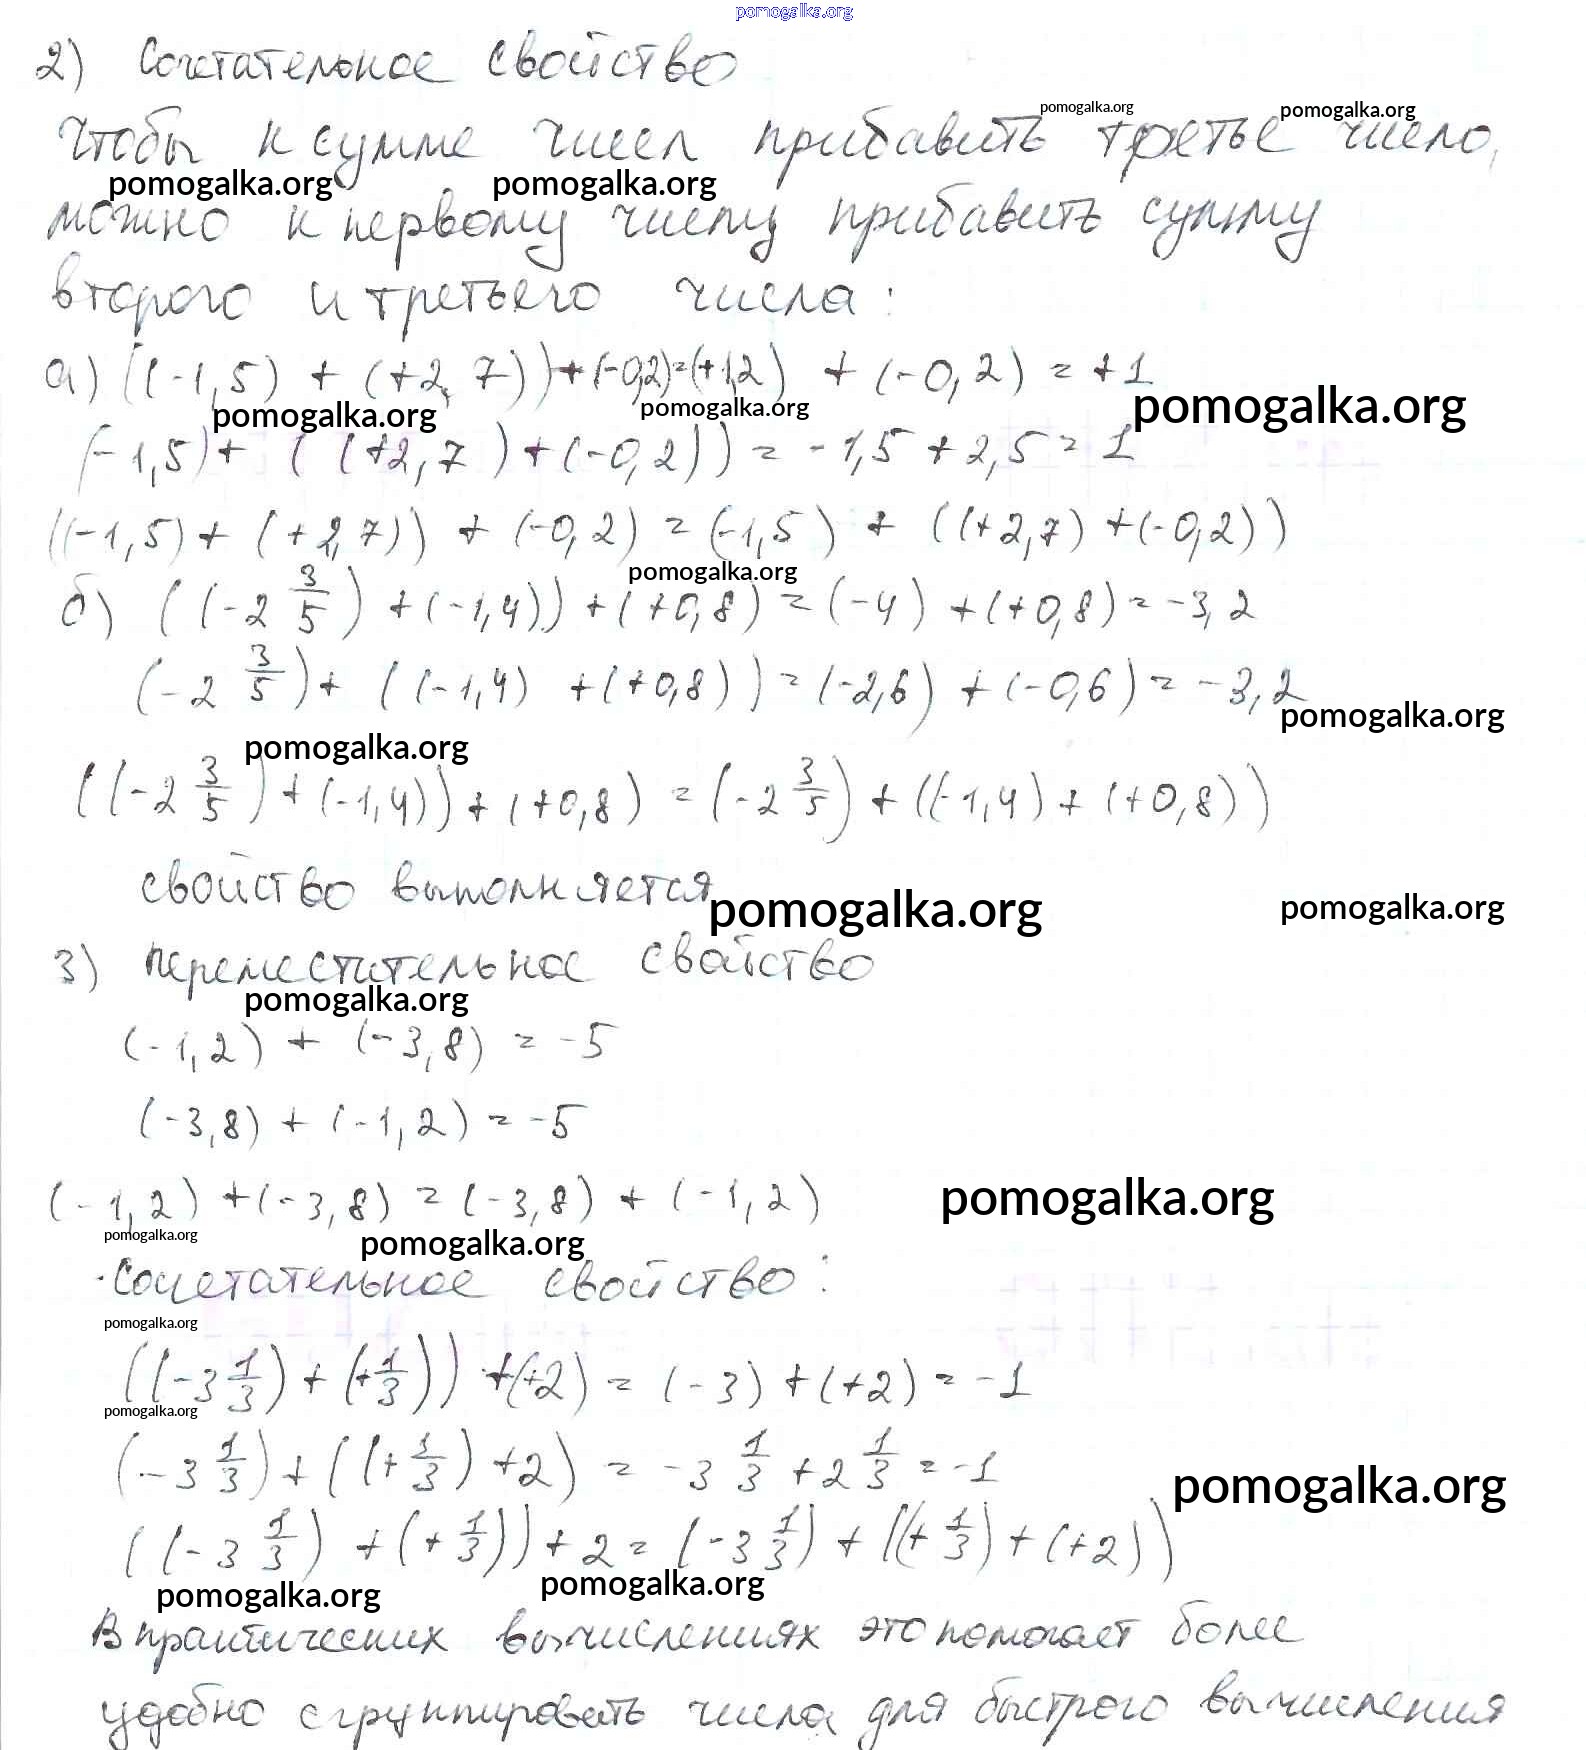 pomogalka.org
2) Сочетательное свойство
pomogalka.org pomogalka.org
Чтобы к сумме чисел прибавить третье число,
pomogalka.org pomogalka.org
можно к первому числу прибавить сумму
второго и третьего числа:
а) ((-1,5) + (+2,7)) + (-0,2) = (+1,2) + (-0,2) = +1
pomogalka.org pomogalka.org pomogalka.org
(-1,5) + ((+2,7) + (-0,2)) = -1,5 + 2,5 = 1
((-1,5) + (+2,7)) + (-0,2) = (-1,5) + ((+2,7) + (-0,2))
pomogalka.org
б) ((-2 3/5) + (-1,4)) + (+0,8) = (-4) + (+0,8) = -3,2
(-2 3/5) + ((-1,4) + (+0,8)) = (-2,6) + (-0,6) = -3,2
pomogalka.org
pomogalka.org
((-2 3/5) + (-1,4)) + (+0,8) = (-2 3/5) + ((-1,4) + (+0,8))
свойство выполняется
pomogalka.org pomogalka.org
3) переместительное свойство
pomogalka.org
(-1,2) + (-3,8) = -5
(-3,8) + (-1,2) = -5
(-1,2) + (-3,8) = (-3,8) + (-1,2)
pomogalka.org
pomogalka.org pomogalka.org
Сочетательное свойство:
pomogalka.org
((-3 1/3) + (+1/3)) + (+2) = (-3) + (+2) = -1
pomogalka.org
(-3 1/3) + ((+1/3) + 2) = -3 1/3 + 2 1/3 = -1
pomogalka.org
((-3 1/3) + (+1/3)) + 2 = (-3 1/3) + ((+1/3) + (+2))
pomogalka.org pomogalka.org
В практических вычислениях это помогает более
удобно сгруппировать числа для быстрого вычисления